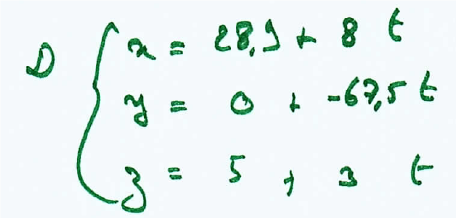 D { x = 28,9 + 8 t
y = 0 + -67,5 t
z = 5 + 3 t